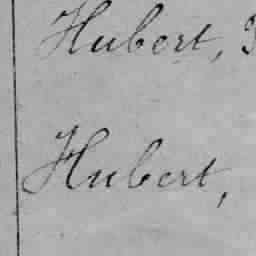 Hubert,
Hubert,